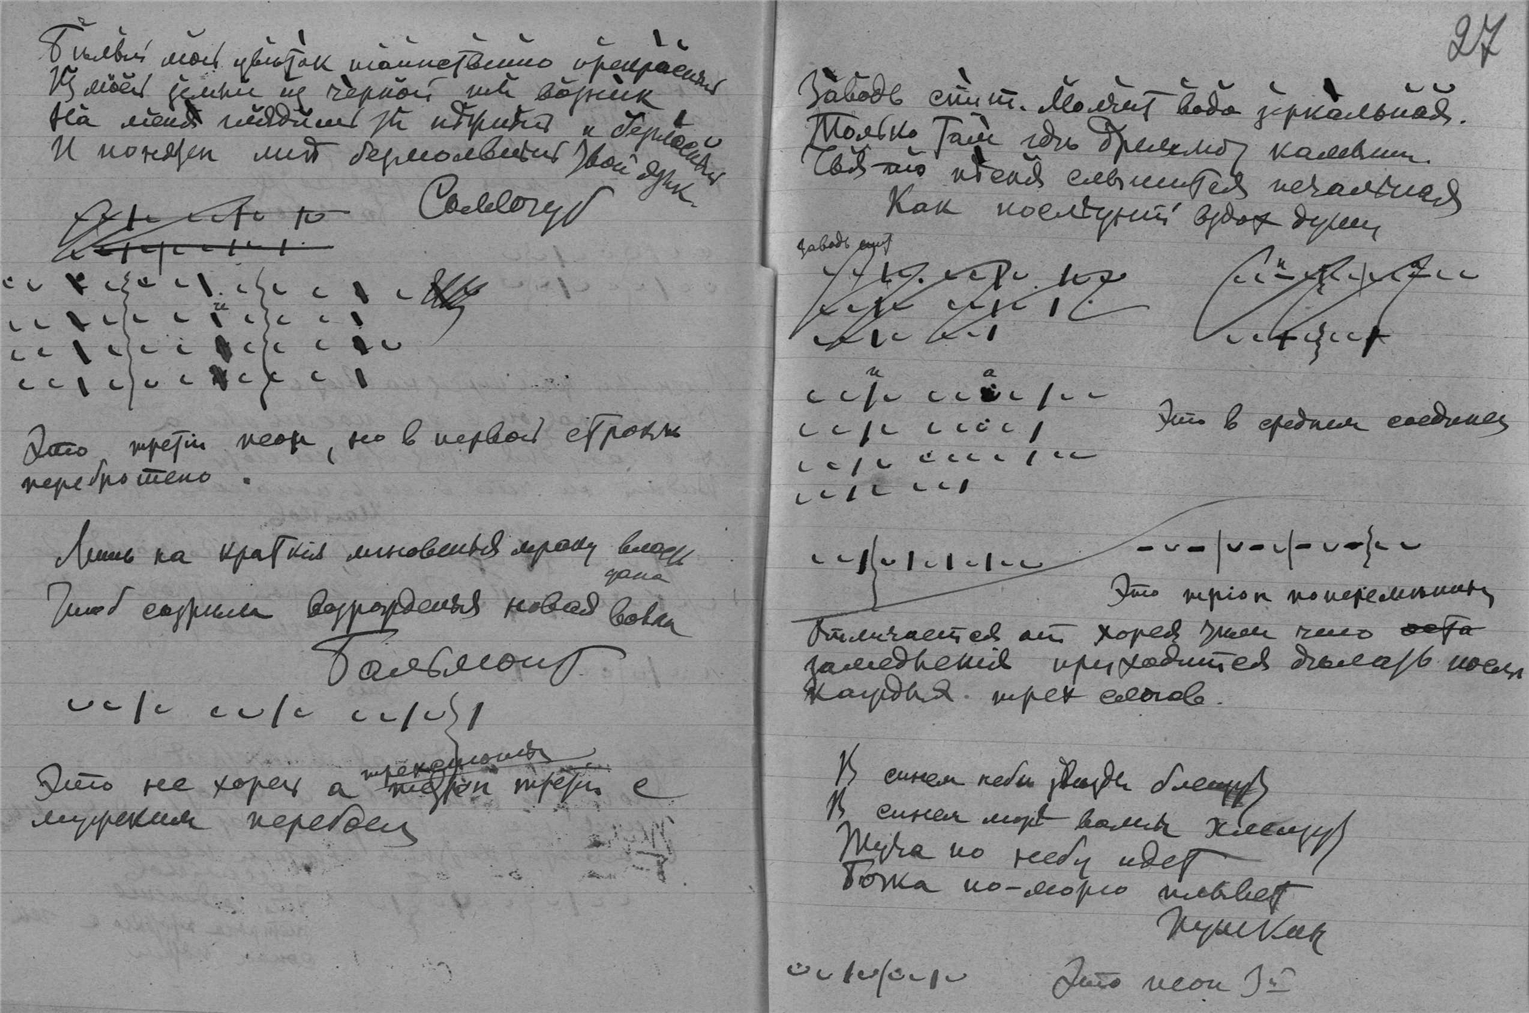 Белый мой цветок таинственно прекрасный
Из моей земли из черной ты возник
На меня глядишь ты нежный и безгласный
И понятен мне безмолвный твой язык.
Сологуб
Это третий пеон, но в первой строке
переброшено.
Лишь на краткия мгновенья мраку власть
дана
Чтоб созрела возрожденья новая волна
Бальмонт
Это не хорей а
трехстопный
пеон третий с
мужским перебоем
27
Заводь спит. Молчит вода зеркальная.
Только там где дремлют камыши
Чья-то песня слышится печальная
Как последний вздох души
Заводь спит
и
а
Это в среднем соединен
Это
Отличается от хорея тем что оста
замедления приходится делать после
каждых трех слогов.
В синем небе звезды блещут
В синем море волны хлещут
Туча по небу идет
Бочка по-морю плывет
Пушкин
Это пеон 3й